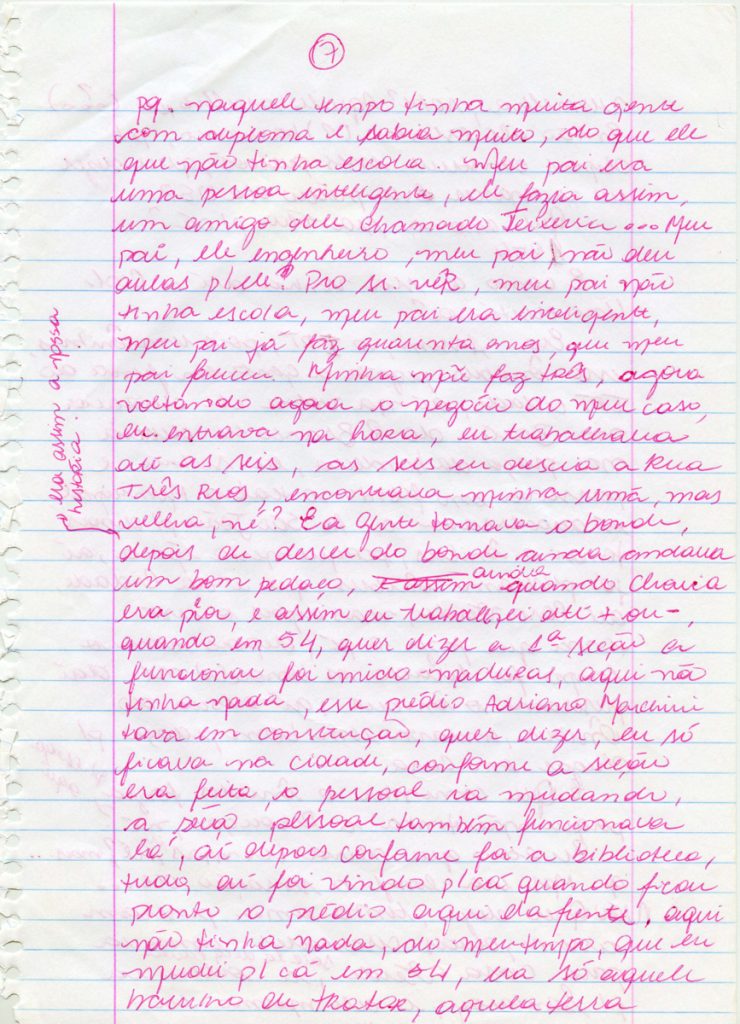 7
pq. naquele tempo tinha muita gente
com diploma e sabia muito, do que ele
que não tinha escola. Meu pai era
uma pessoa inteligente, ele fazia assim,
um amigo dele chamado Teixeira ... Meu
pai, ele engenheiro, meu pai, não deu
aulas p/ele? Pro sr. vêR, meu pai não
tinha escola, meu pai era inteligente,
meu pai já faz quarenta anos, que meu
pai faleceu. Minha mãe faz três, agora
voltando agora o negócio do meu caso,
eu entrava na hora, eu trabalhava
até as seis, as seis eu descia a Rua
Três Rios, encontrava minha irmã, mas
velha, né? E a gente tomava o bonde,
era assim a nossa
história.
depois de descer do bonde ainda andava
um bom pedaço, e assim ainda quando chovia
era pior, e assim eu trabalhei até + ou -,
quando em 54, quer dizer a 1ª seção a
funcionar foi micro-madeiras, aqui não
tinha nada, esse prédio Adriano Marchini
tava em construção, quer dizer, eu só
ficava na cidade, conforme a seção
era feita, o pessoal ia mudando,
a seção pessoal também funcionava
lá, aí depois conforme foi a biblioteca,
tudo, aí foi vindo p/cá quando ficou
pronto o prédio aqui da frente, aqui
não tinha nada, do meu tempo, que eu
mudei p/cá em 54, era só aquele
de trator, aquela terra